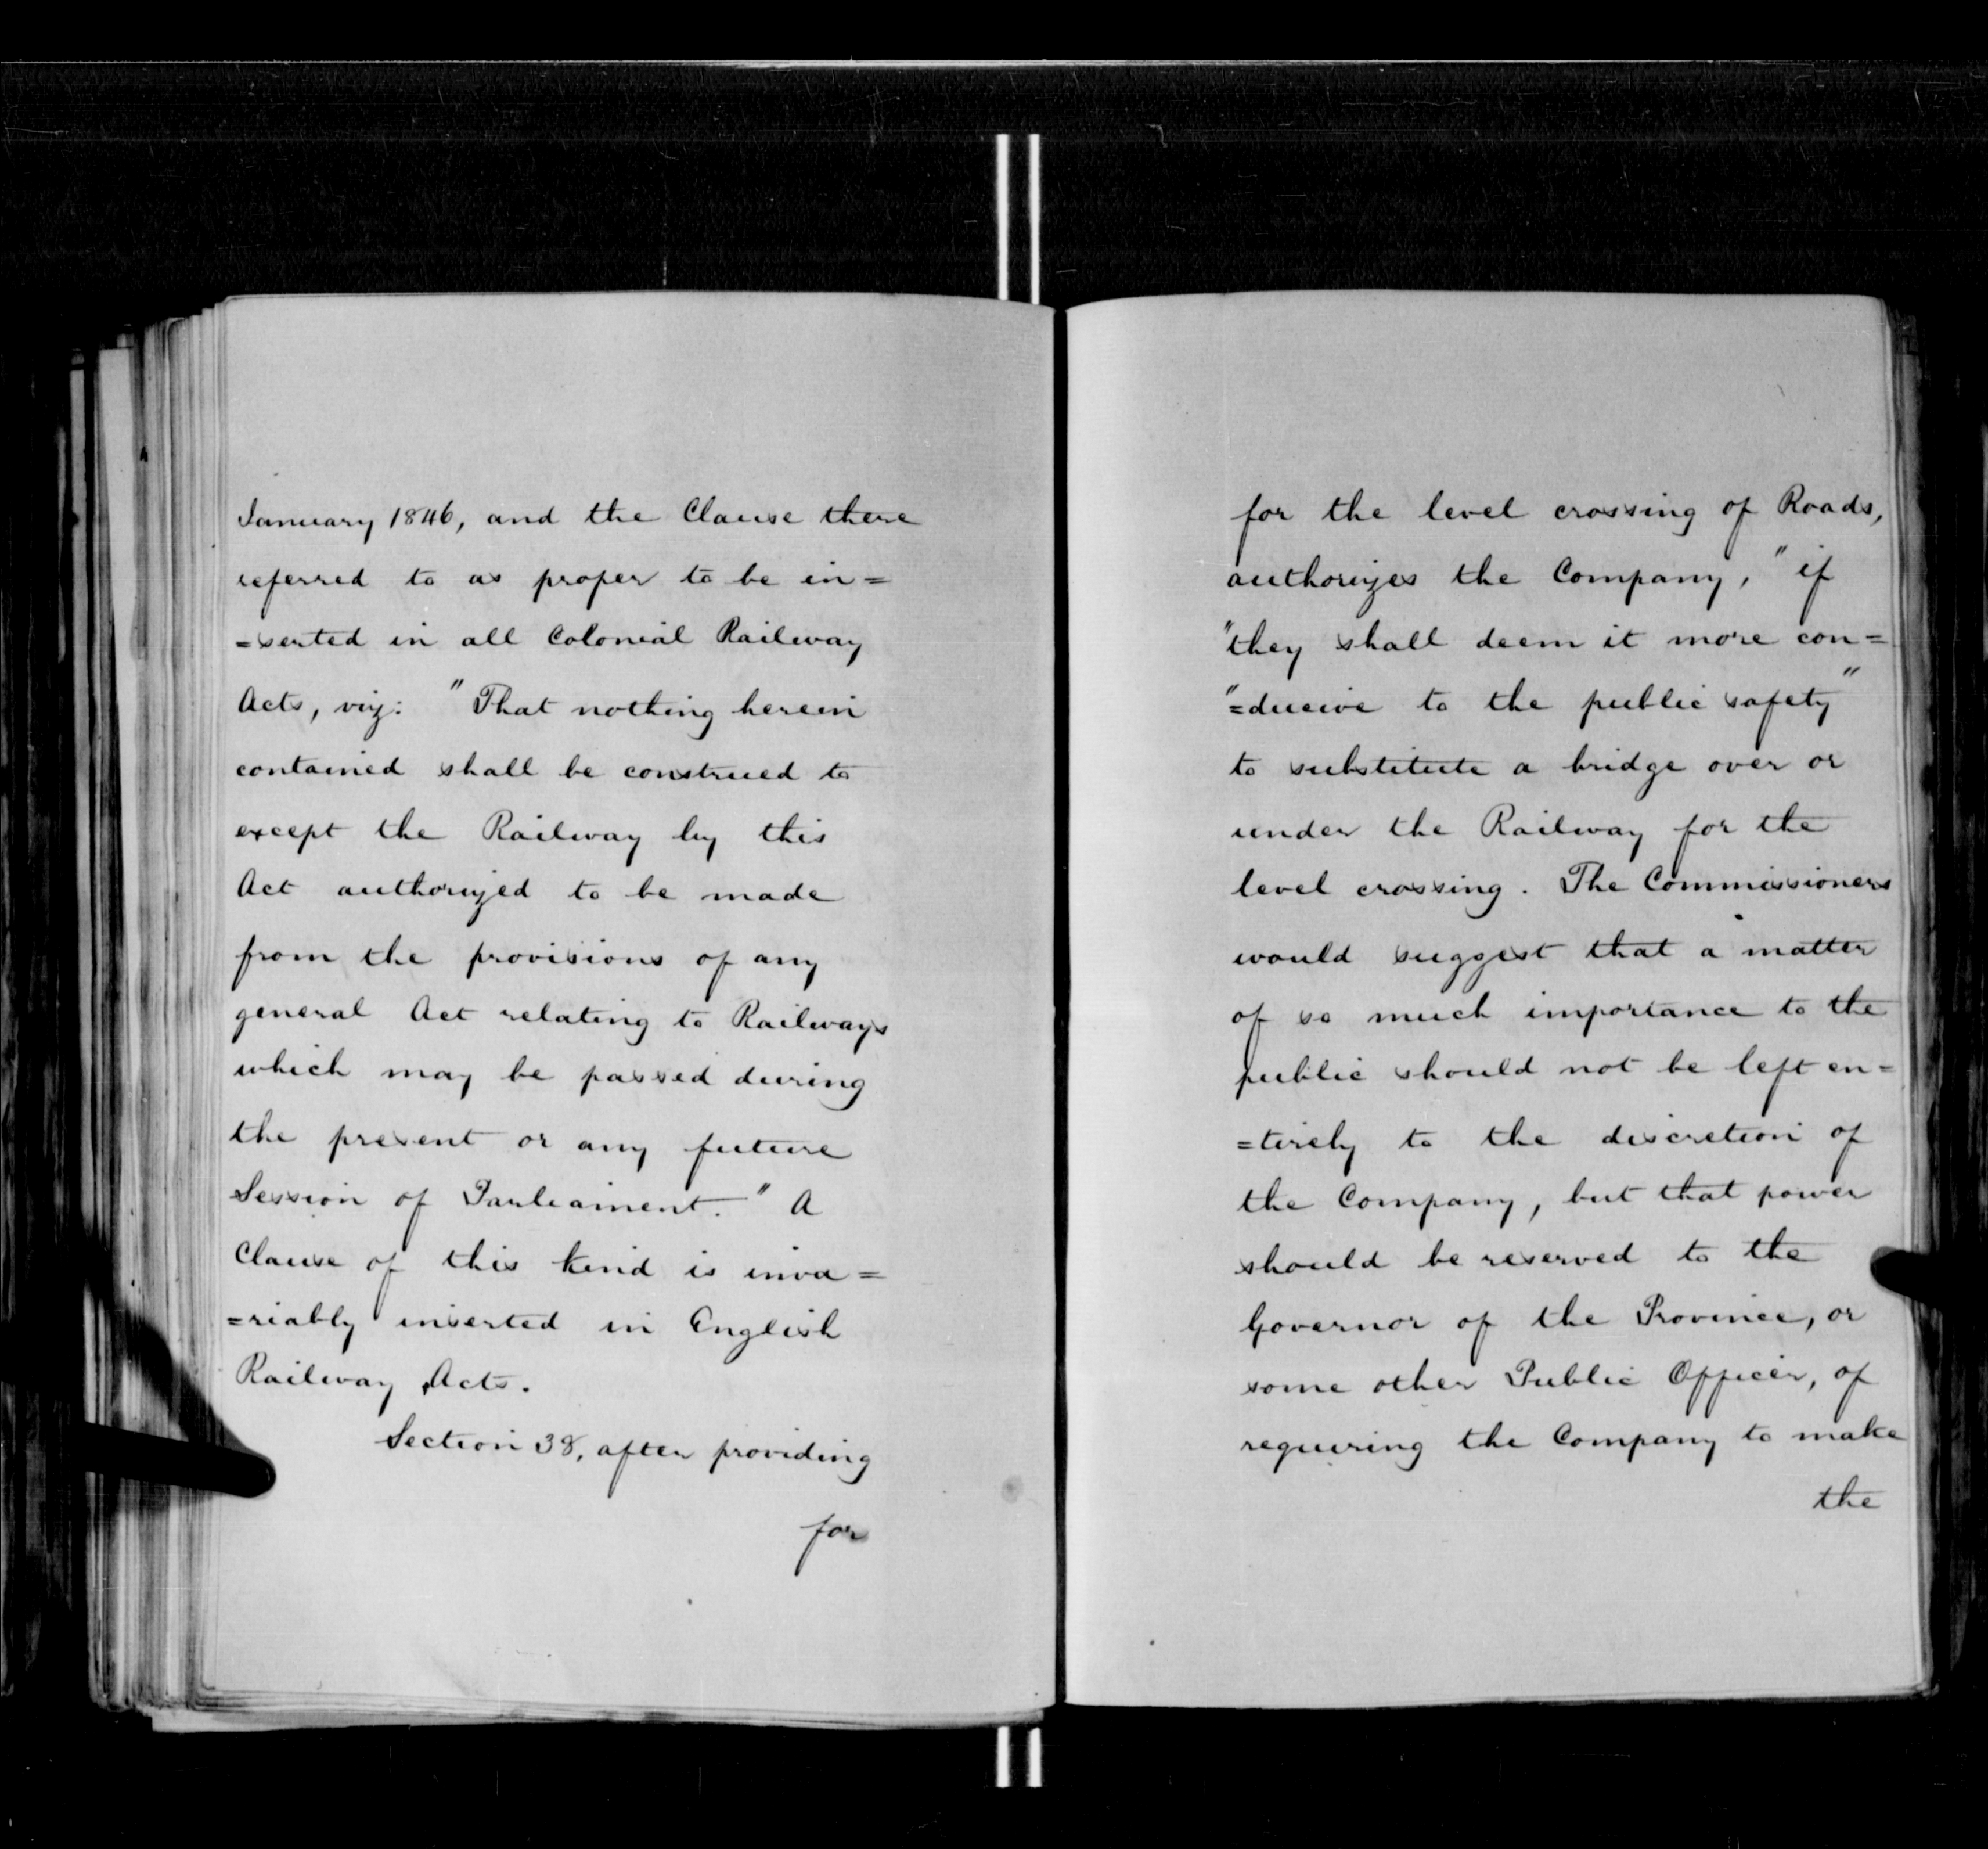 January 1846, and the Clause there
referred to as proper to be in=
=serted in all Colonial Railway
Acts, viz: "That nothing herein
contained shall be construed to
except the Railway by this
Act authorized to be made
from the provisions of any
general Act relating to Railways
which may be passed during
the present or any future
Session of Parliament." A
Clause of this kind is inva=
=riably inserted in English
Railway Acts.
Section 38, after providing
for
for the level crossing of Roads,
authorizes the Company, "if
"they shall deem it more con=
"=ducive to the public safety"
to substitute a bridge over or
under the Railway for the
level crossing. The Commissioners
would suggest that a matter
of so much importance to the
public should not be left en=
=tirely to the discretion of
the Company, but that power
should be reserved to the
Governor of the Province, or
some other Public Officer, of
requiring the Company to make
the